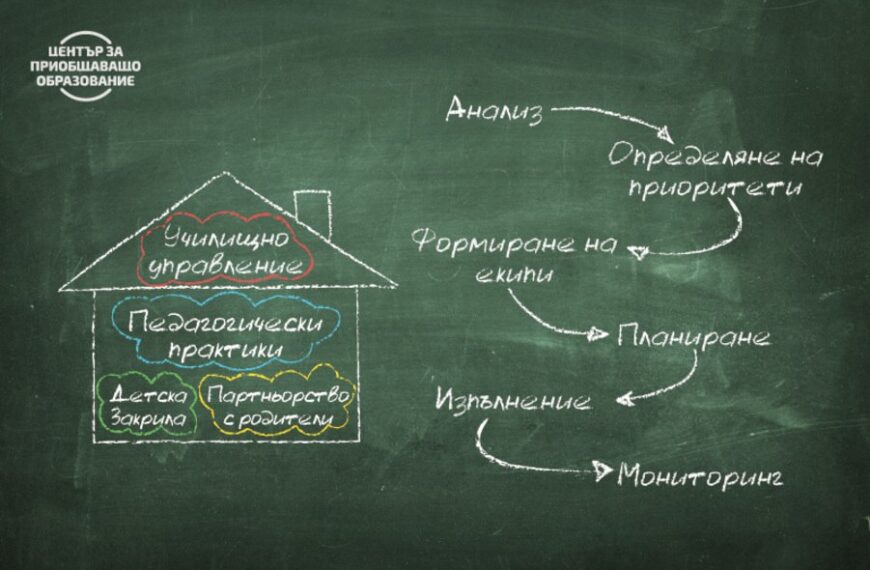 ЦЕНТЪР ЗА
ПРИОБЩАВАЩО
ОБРАЗОВАНИЕ
Училищно
управление
Педагогически
практики
Детска
Закрила
Партньорство
с родители
Анализ
Определяне на
приоритети
Формиране на
екипи
Планиране
Изпълнение
Мониторинг